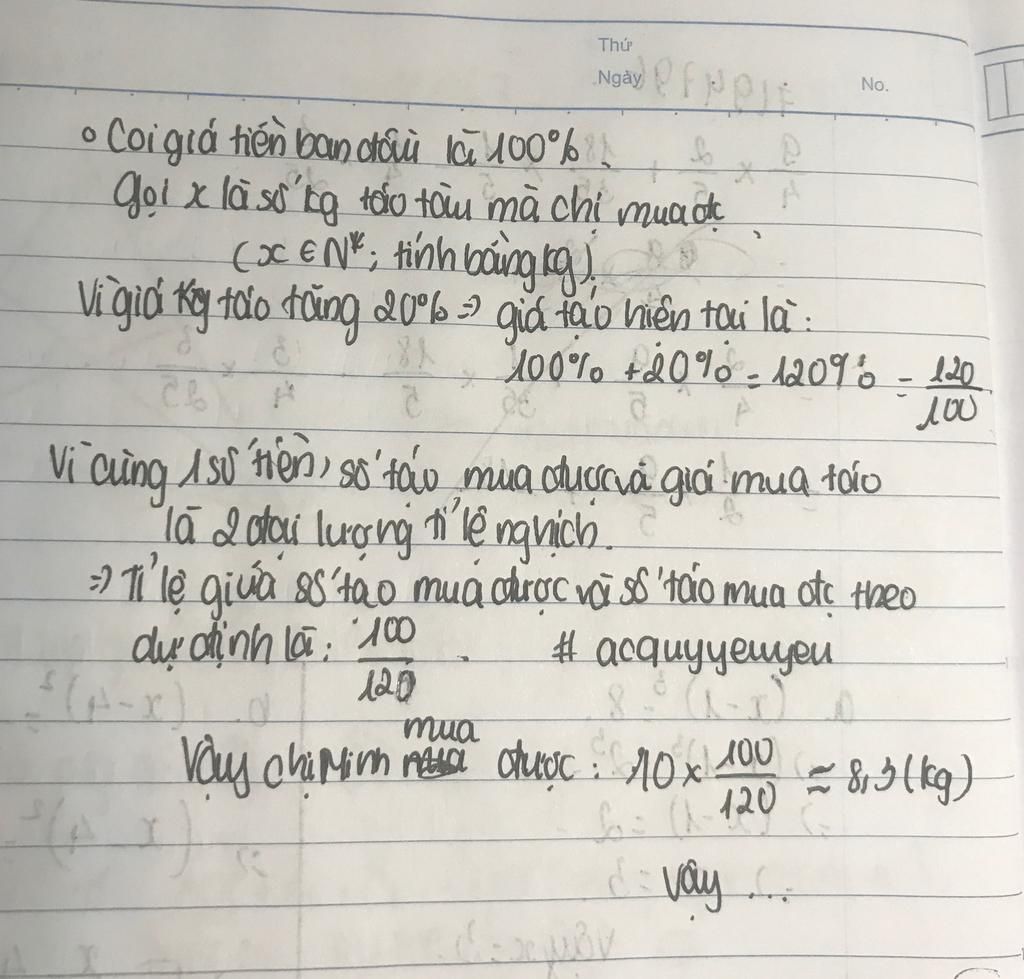 Thứ
Ngày
No.
Coi giá tiền ban đầu là 100%.
Gọi x là số kg táo tàu mà chị mua đc
(x ∈ N*; tính bằng kg)
Vì giá kg táo tăng 20% => giá táo hiện tại là:
100% + 20% = 120% = 120/100
Vì cùng 1 số tiền, số táo mua được và giá mua táo
là 2 đại lượng tỉ lệ nghịch.
=> Tỉ lệ giữa số táo mua được và số táo mua đc theo
dự định là: 100/120. # acquyyeuyeu
Vậy chị Minh mua được: 10 × 100/120 ≈ 8,3 (kg)
Vậy ...